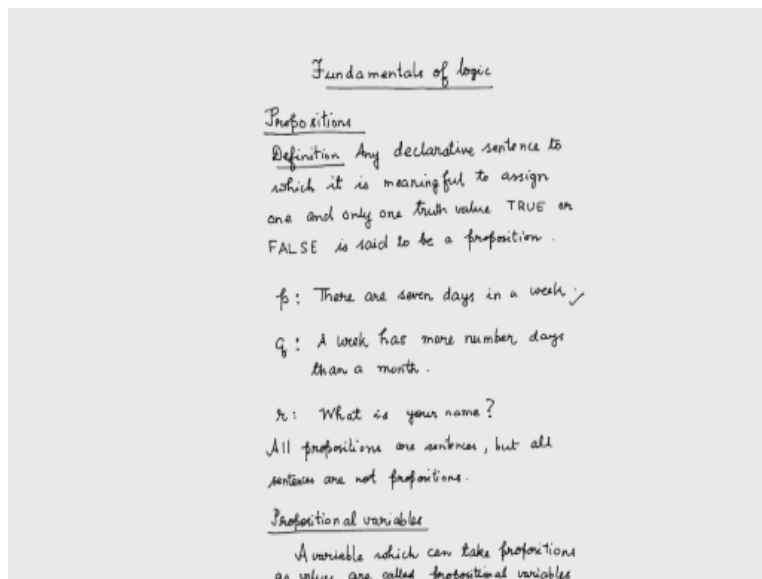 Fundamentals of logic
Propositions
Definition Any declarative sentence to
which it is meaningful to assign
one and only one truth value TRUE or
FALSE is said to be a proposition.
p: There are seven days in a week. ✓
q: A week has more number days
than a month.
r: What is your name?
All propositions are sentences, but all
sentences are not propositions.
Propositional variables
A variable which can take propositions
as values are called propositional variables